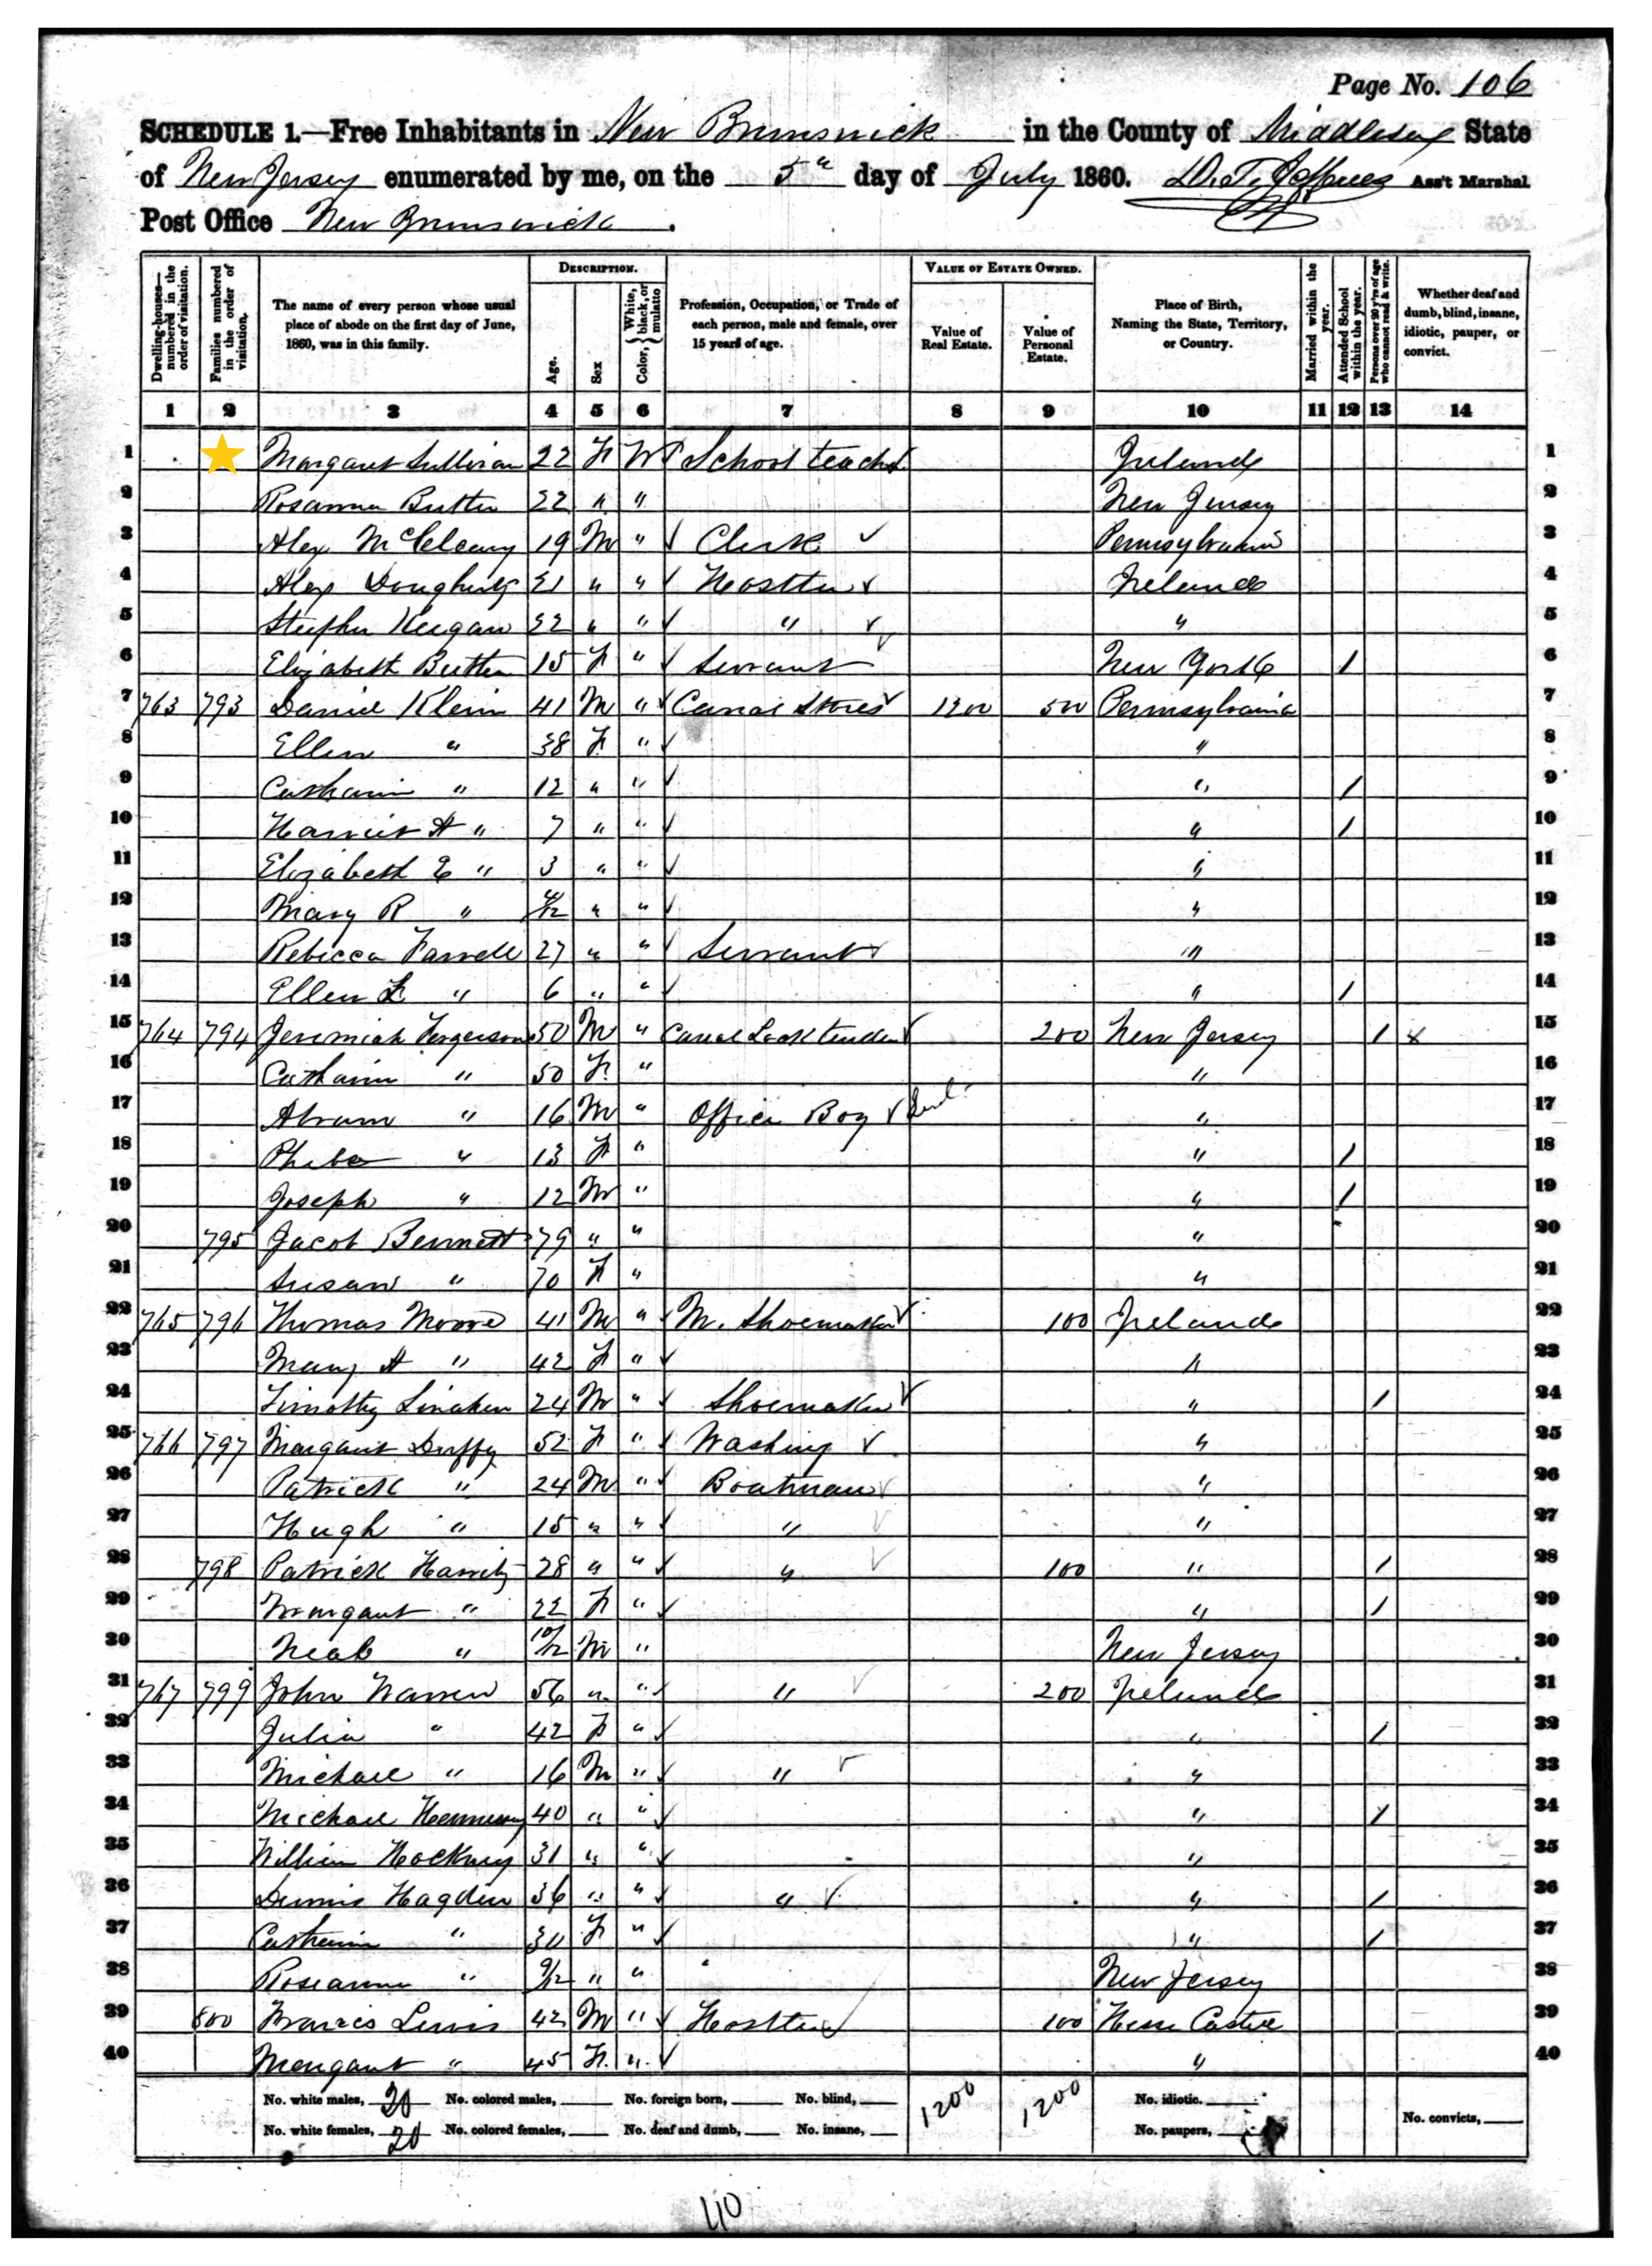 Page No. 106
SCHEDULE 1.—Free Inhabitants in New Brunswick in the County of Middlesex State
of New Jersey enumerated by me, on the 5th day of July 1860. Ass't Marshal
Post Office New Brunswick.
DESCRIPTION. VALUE OF ESTATE OWNED.
Dwelling-houses—numbered in the order of visitation. Families numbered in the order of visitation. The name of every person whose usual place of abode on the first day of June, 1860, was in this family. Age. Sex Color, { White, black, or mulatto Profession, Occupation, or Trade of each person, male and female, over 15 years of age. Value of Real Estate. Value of Personal Estate. Place of Birth, Naming the State, Territory, or Country. Married within the year. Attended School within the year. Persons over 20 y'rs of age who cannot read & write. Whether deaf and dumb, blind, insane, idiotic, pauper, or convict.
1 2 3 4 5 6 7 8 9 10 11 12 13 14
1 Margaret Sullivan 22 F W School teacher Ireland 1
2 Rosanna 22 " " New Jersey 2
3 Alex McCleary 19 M " Clerk Pennsylvania 3
4 Alex " " Hostler Ireland 4
5 Stephen Keegan " " " " 5
6 Elizabeth 15 F " Servant New York / 6
7 763 793 Daniel Klein 41 M " Canal Stores 1200 500 Pennsylvania 7
8 Ellen " 38 F " " 8
9 Catharin " 12 " " " / 9
10 Harriet A " 7 " " " / 10
11 Elizabeth E " 3 " " " 11
12 Mary R " " " " 12
13 Rebecca Farrell 27 " " Servant " 13
14 Ellen F " 6 " " " / 14
15 764 794 Jeremiah Fergerson 50 M " Canal Lock tender 200 New Jersey / x 15
16 Catharin " 50 F " " 16
17 Abram " 16 M " Office Boy " 17
18 Phebe " 13 F " " / 18
19 Joseph " 12 M " " / 19
20 795 Jacob Bennett 79 " " " 20
21 Susan " 70 F " " 21
22 765 796 Thomas Moore 41 M " M. Shoemaker 100 Ireland 22
23 Mary A " 42 F " " 23
24 Timothy 24 M " Shoemaker " / 24
25 766 797 Margaret Duffy 52 F " Washing " 25
26 Patrick " 24 M " Boatman " 26
27 Hugh " 15 " " " " 27
28 798 Patrick 28 " " " 100 " / 28
29 Margaret " 22 F " " / 29
30 Neal " 10/12 M " New Jersey 30
31 767 799 John Warren 56 " " " 200 Ireland 31
32 Julia " 42 F " " / 32
33 Michael " 16 M " " " 33
34 Michael Hennessy 40 " " " / 34
35 William Hockney 31 " " " 35
36 Dennis Hagden 36 " " " " / 36
37 Catharin " 30 F " " / 37
38 Roseanna " 9/12 " " New Jersey 38
39 800 Francis Lewis 42 M " Hostler 100 Hesse Castle 39
40 Margaret " 45 F " " 40
No. white males, 20 No. colored males, No. foreign born, No. blind, 1200 1200 No. idiotic.
No. white females, 20 No. colored females, No. deaf and dumb, No. insane, No. paupers, No. convicts,
40